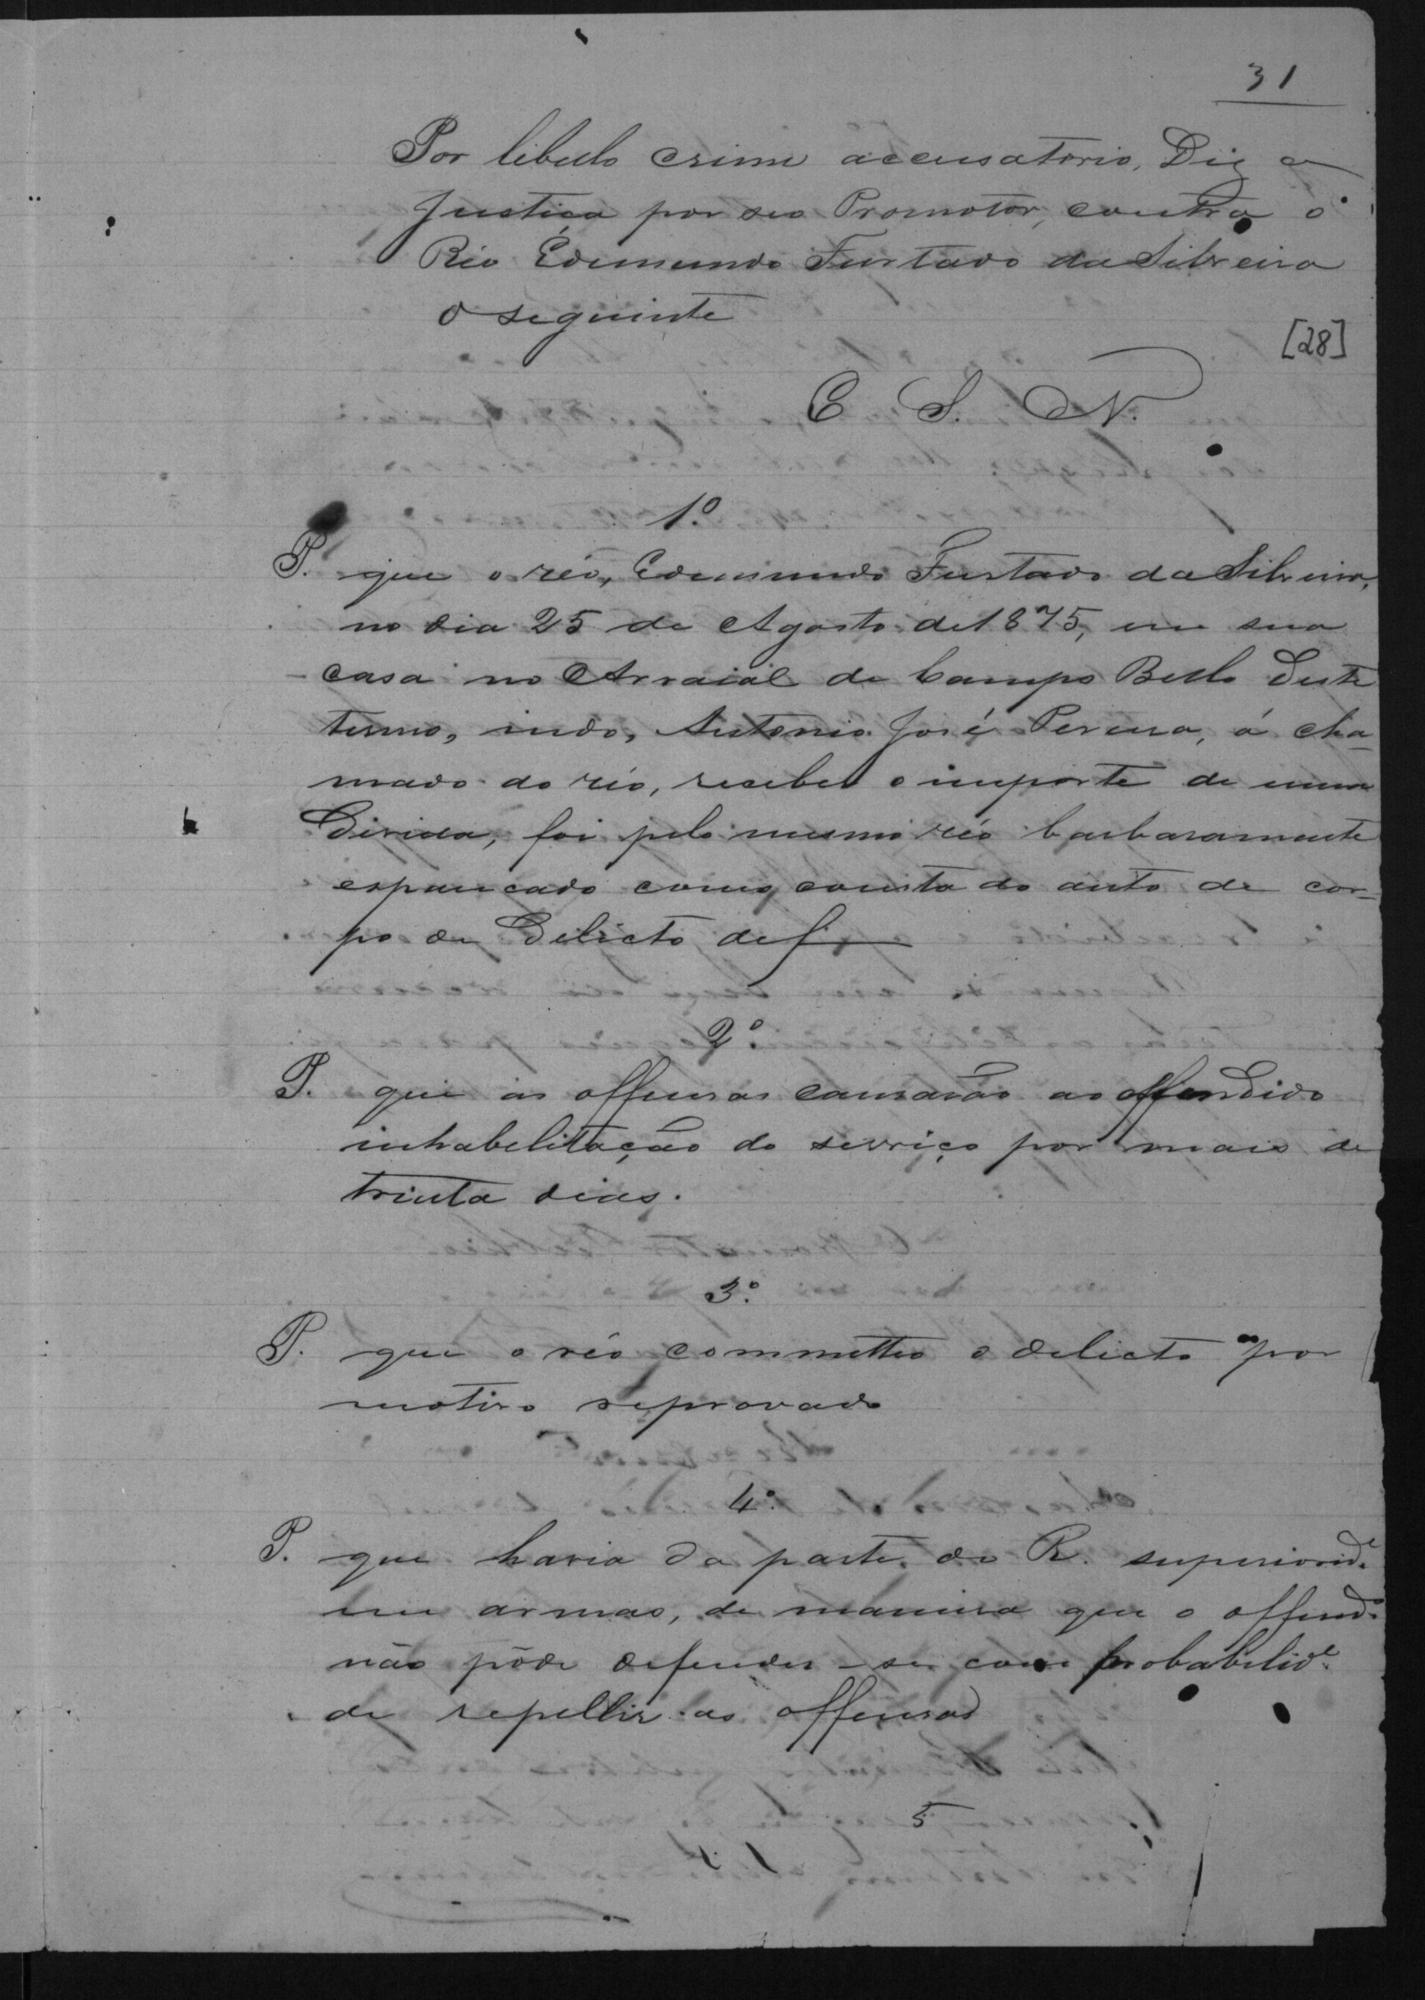 31
Por libello crime accusatorio, Diz a
Justiça por seo Promotor, contra o
Réo Edemundo Furtado da Silveira
o seguinte
[28]
E. S. N.
1.º
P. que o réo, Edemundo Furtado da Silveira,
no dia 25 de Agosto de 1875, em sua
casa no Arraial de Campo Bello deste
termo, indo, Antonio José Pereira, á cha-
mado do réo, receber o importe de uma
divida, foi pelo mesmo réo barbaramente
espancado como consta do auto de cor-
po de Delicto de f
2º.
P. que as offensas causarão ao offendido
inhabelitação do serviço por mais de
trinta dias.
3º.
P. que o réo commetteo o delicto por
motivo reprovado
4º.
P. que havia da parte do R. superiorid.e
em armas, de maneira que o offend.o
não pôde defender-se com probabelid.e
de repellir as offensas
5